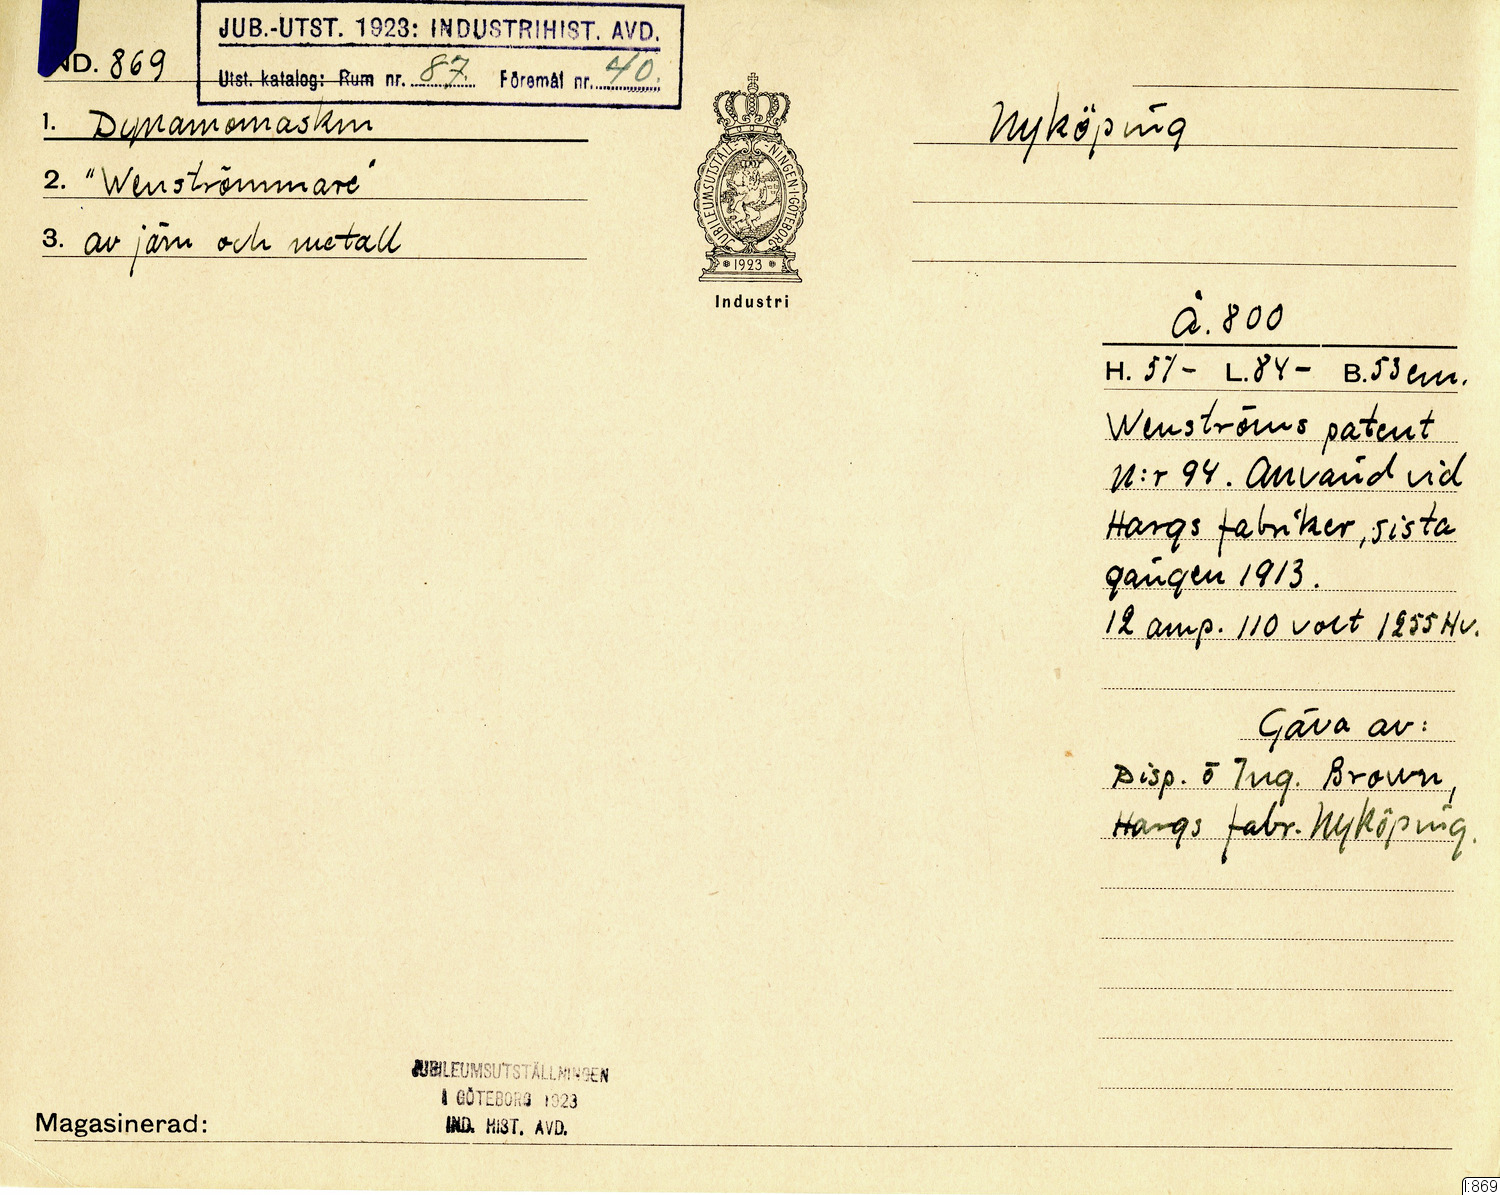 JUB.-UTST. 1923: INDUSTRIHIST. AVD.
Utst. katalog: Rum nr. 87. Föremål nr. 40.
IND. 869
1. Dynamomaskin
2. "Wenströmmare"
3. av järn och metall
JUBILEUMSUTSTÄLL-NINGEN·I·GÖTEBORG
1923
Industri
Nyköping
Å. 800
H. 51- L. 84- B. 53 cm.
Wenströms patent
N:r 94. Använd vid
Hargs fabriker, sista
gången 1913.
12 amp. 110 volt 1255 Hv.
Gåva av:
Disp. o Ing. Brown,
Hargs fabr. Nyköping.
JUBILEUMSUTSTÄLLNINGEN
I GÖTEBORG 1923
IND. HIST. AVD.
Magasinerad:
I:869